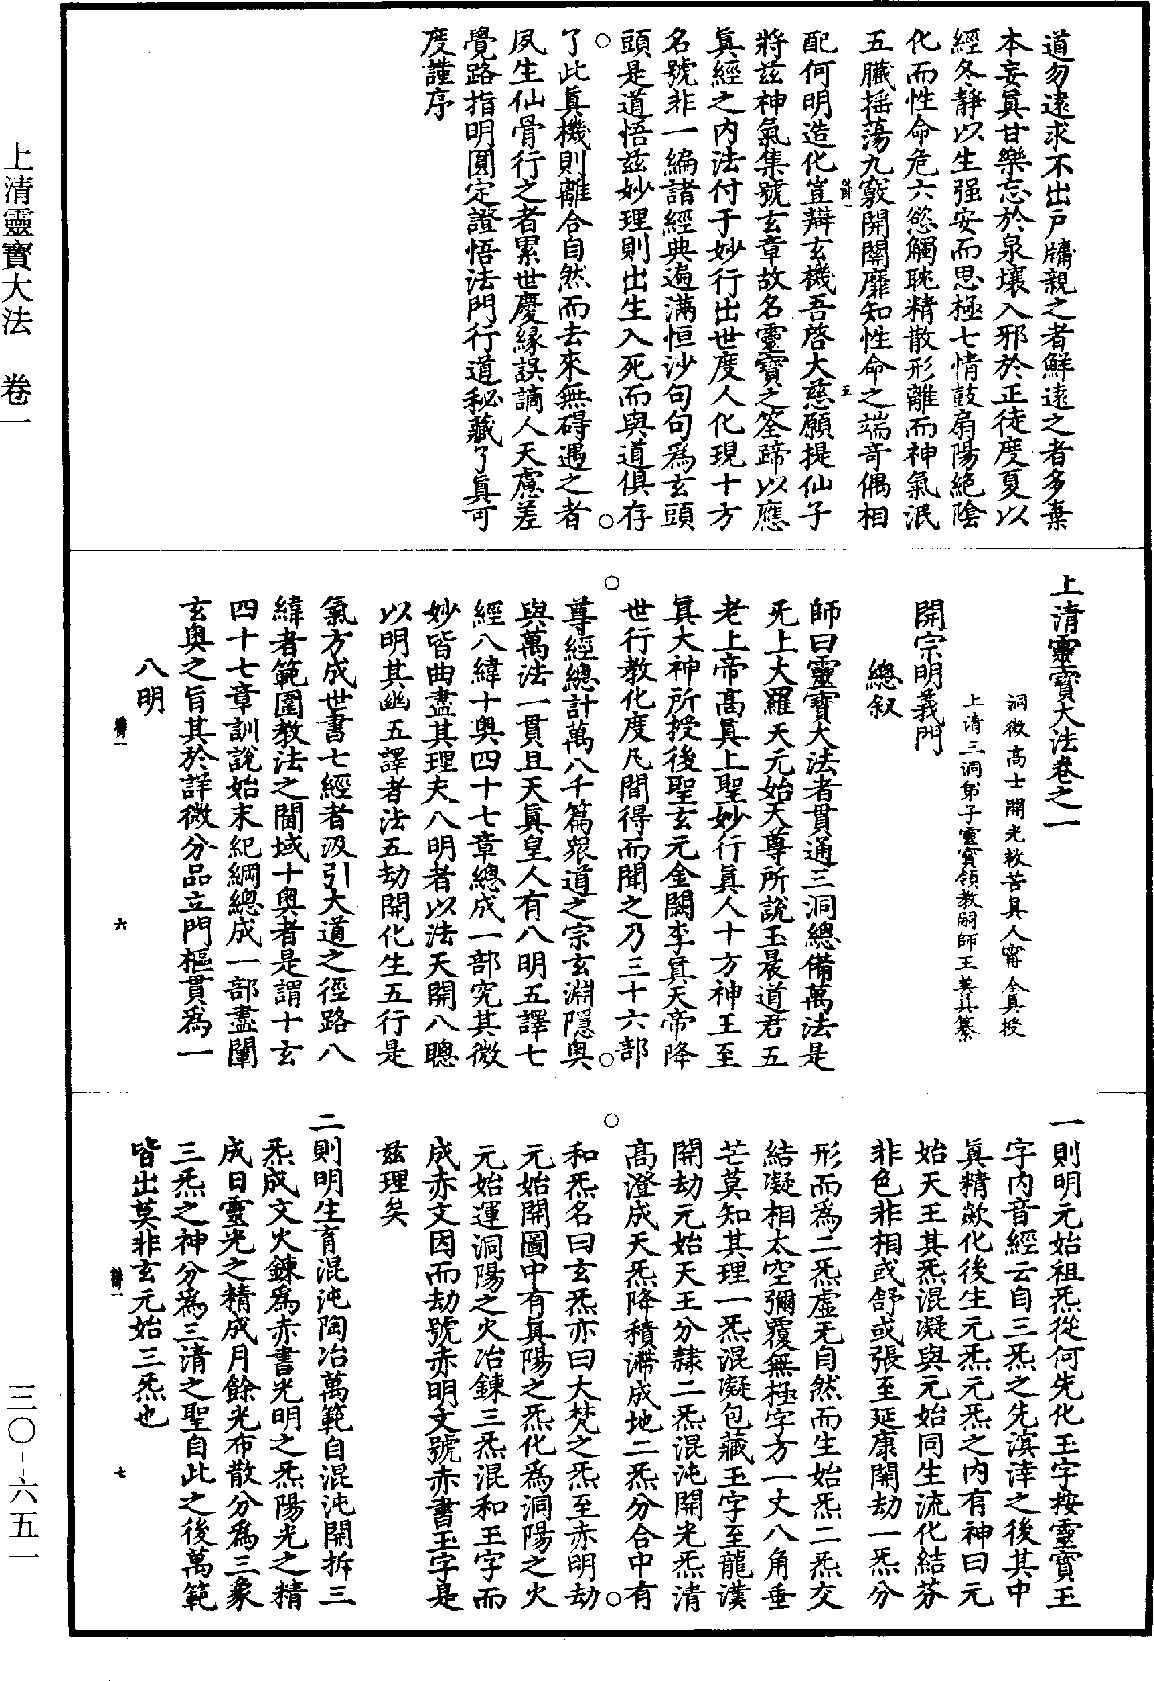 上清靈寶大法　卷一
道勿遠求不出戶牖親之者鮮遠之者多棄
本妄真甘樂忘於泉壤入邪於正徒度夏以
經冬靜以生强安而思極七情鼓扇陽絶陰
化而性命危六慾觸眈精散形離而神氣泯
五臟摇蕩九竅開闔靡知性命之端奇偶相
配何明造化豈辯玄機吾啓大慈願提仙子
將兹神氣集號玄章故名靈寶之筌蹄以應
真經之内法付于妙行出世度人化現十方
名號非一編諸經典遍滿恒沙句句爲玄頭
頭是道悟兹妙理則出生入死而與道俱存
了此真機則離合自然而去來無碍遇之者
夙生仙骨行之者累世慶緣誤謫人天慮差
覺路指明圓定證悟法門行道秘藏了真可
度謹序
五
上清靈寶大法卷之一
洞微高士開光救苦真人甯全真授
上清三洞弟子靈寶領教嗣師王契真纂
開宗明義門
總叙
師曰靈寶大法者貫通三洞總備萬法是
无上大羅天元始天尊所說玉晨道君五
老上帝高真上聖妙行真人十方神王至
真大神所授後聖玄元金闕李真天帝降
世行教化度凡間得而聞之乃三十六部
尊經總計萬八千篇衆道之宗玄淵隱奥
與萬法一貫且天真皇人有八明五譯七
經八緯十奥四十七章總成一部究其微
妙皆曲盡其理夫八明者以法天開八聰
以明其幽五譯者法五劫開化生五行是
氣方成世書七經者汲引大道之徑路八
緯者範圍教法之閫域十奥者是謂十玄
四十七章訓說始末紀綱總成一部盡闡
玄奥之旨其於詳微分品立門樞貫爲一
八明
六
一則明元始祖炁從何先化玉字按靈寶玉
字内音經云自三炁之先溟涬之後其中
真精欻化後生元炁元炁之内有神曰元
始天王其炁混凝與元始同生流化結芬
非色非相或舒或張至延康開劫一炁分
形而爲二炁虛无自然而生始炁二炁交
結凝相太空彌覆無極字方一丈八角垂
芒莫知其理一炁混凝包藏玉字至龍漢
開劫元始天王分隸二炁混沌開光炁清
高澄成天炁降積滯成地二炁分合中有
和炁名曰玄炁亦曰大梵之炁至赤明劫
元始開圖中有真陽之炁化爲洞陽之火
元始運洞陽之火冶鍊三炁混和玉字而
成赤文因而劫號赤明文號赤書玉字是
兹理矣
二則明生育混沌陶冶萬範自混沌開拆三
炁成文火鍊爲赤書光明之炁陽光之精
成日靈光之精成月餘光布散分爲三象
三炁之神分爲三清之聖自此之後萬範
皆出莫非玄元始三炁也
七
三〇-六五一